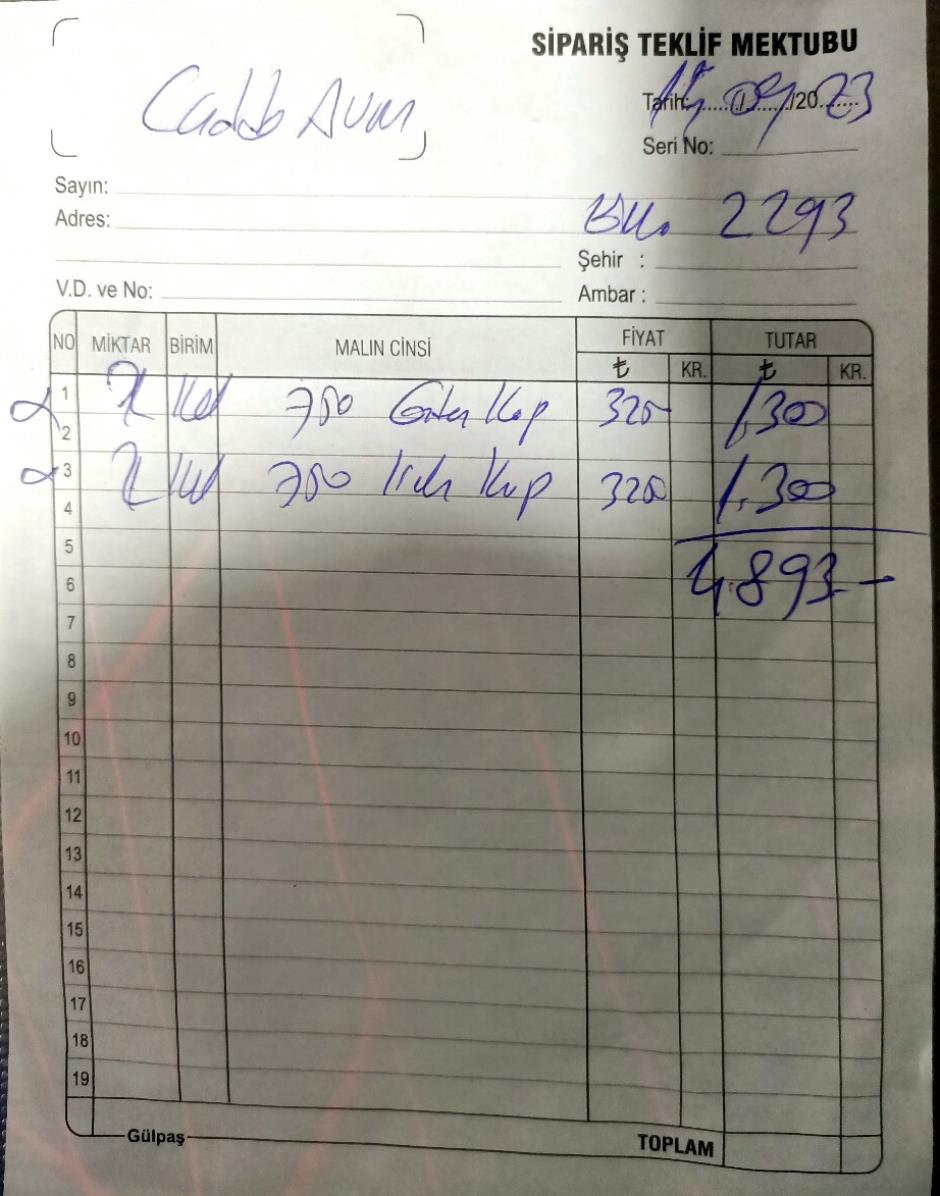 SİPARİŞ TEKLİF MEKTUBU
Tarih: ....../....../20 23
Seri No:
Sayın:
Adres:
2293
Şehir :
V.D. ve No:
Ambar :
NO MİKTAR BİRİM MALIN CİNSİ FİYAT TUTAR
₺ KR. ₺ KR.
1 750 Kap 325 1,300
2
3 750 Kap 325 1.300
4
5
4.893-
6
7
8
9
10
11
12
13
14
15
16
17
18
19
Gülpaş TOPLAM